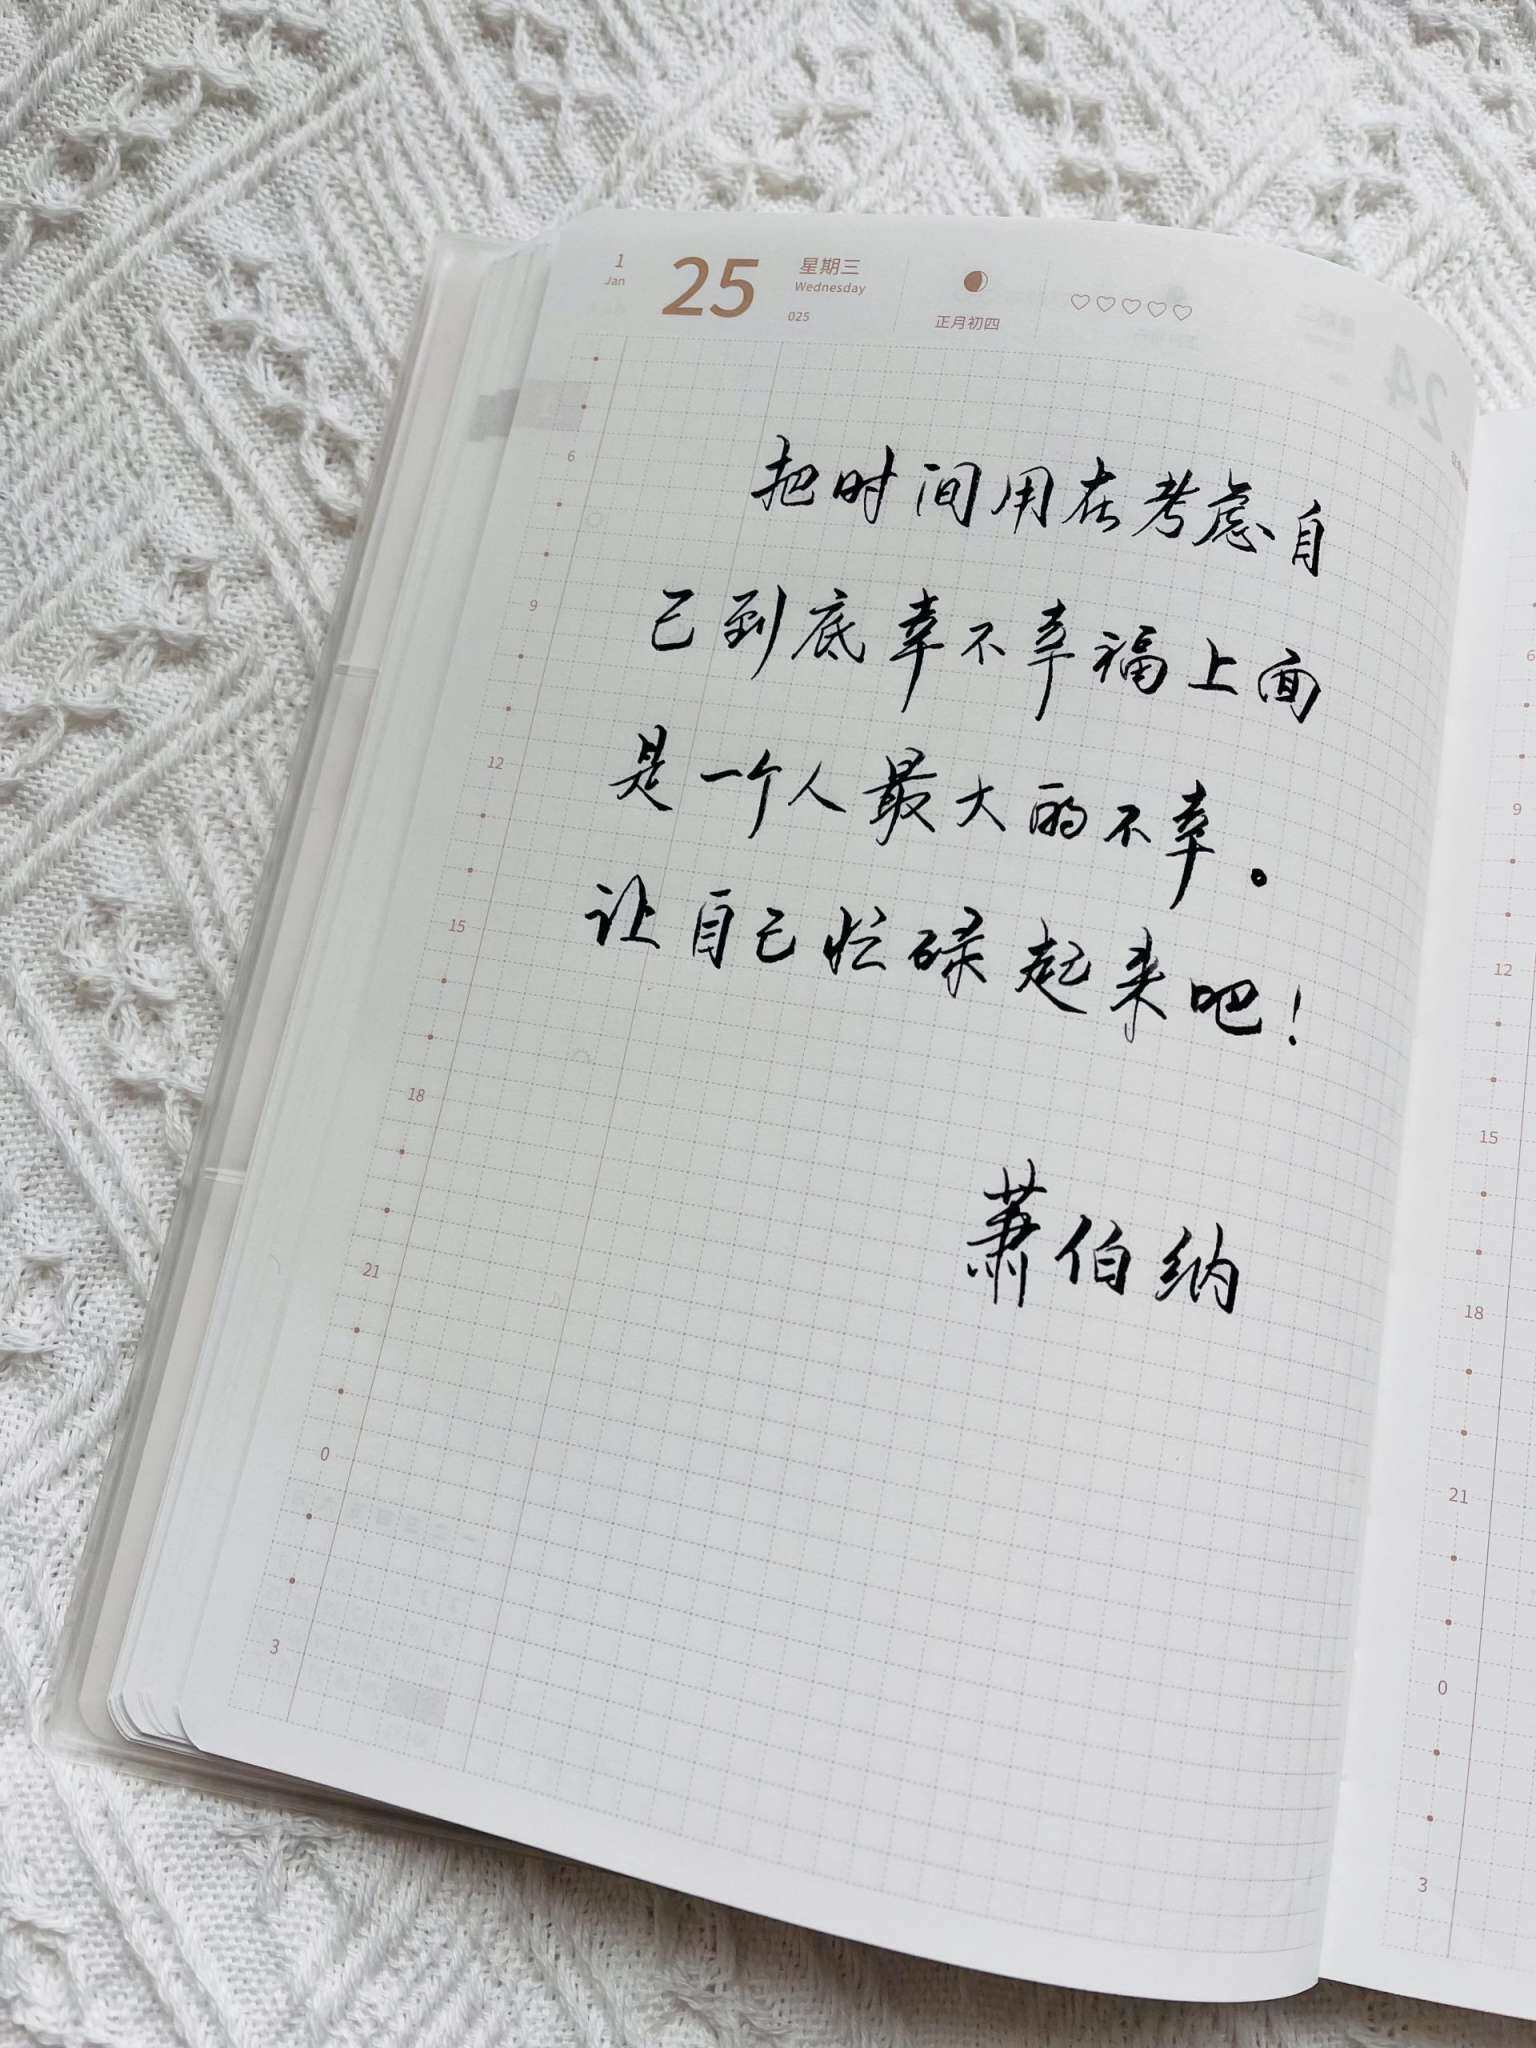 1
Jan
25
星期三
Wednesday
025
正月初四
24
把时间用在考虑自
己到底幸不幸福上面
是一个人最大的不幸。
让自己忙碌起来吧！
萧伯纳
6
9
12
15
18
21
0
3
6
9
12
15
18
21
0
3